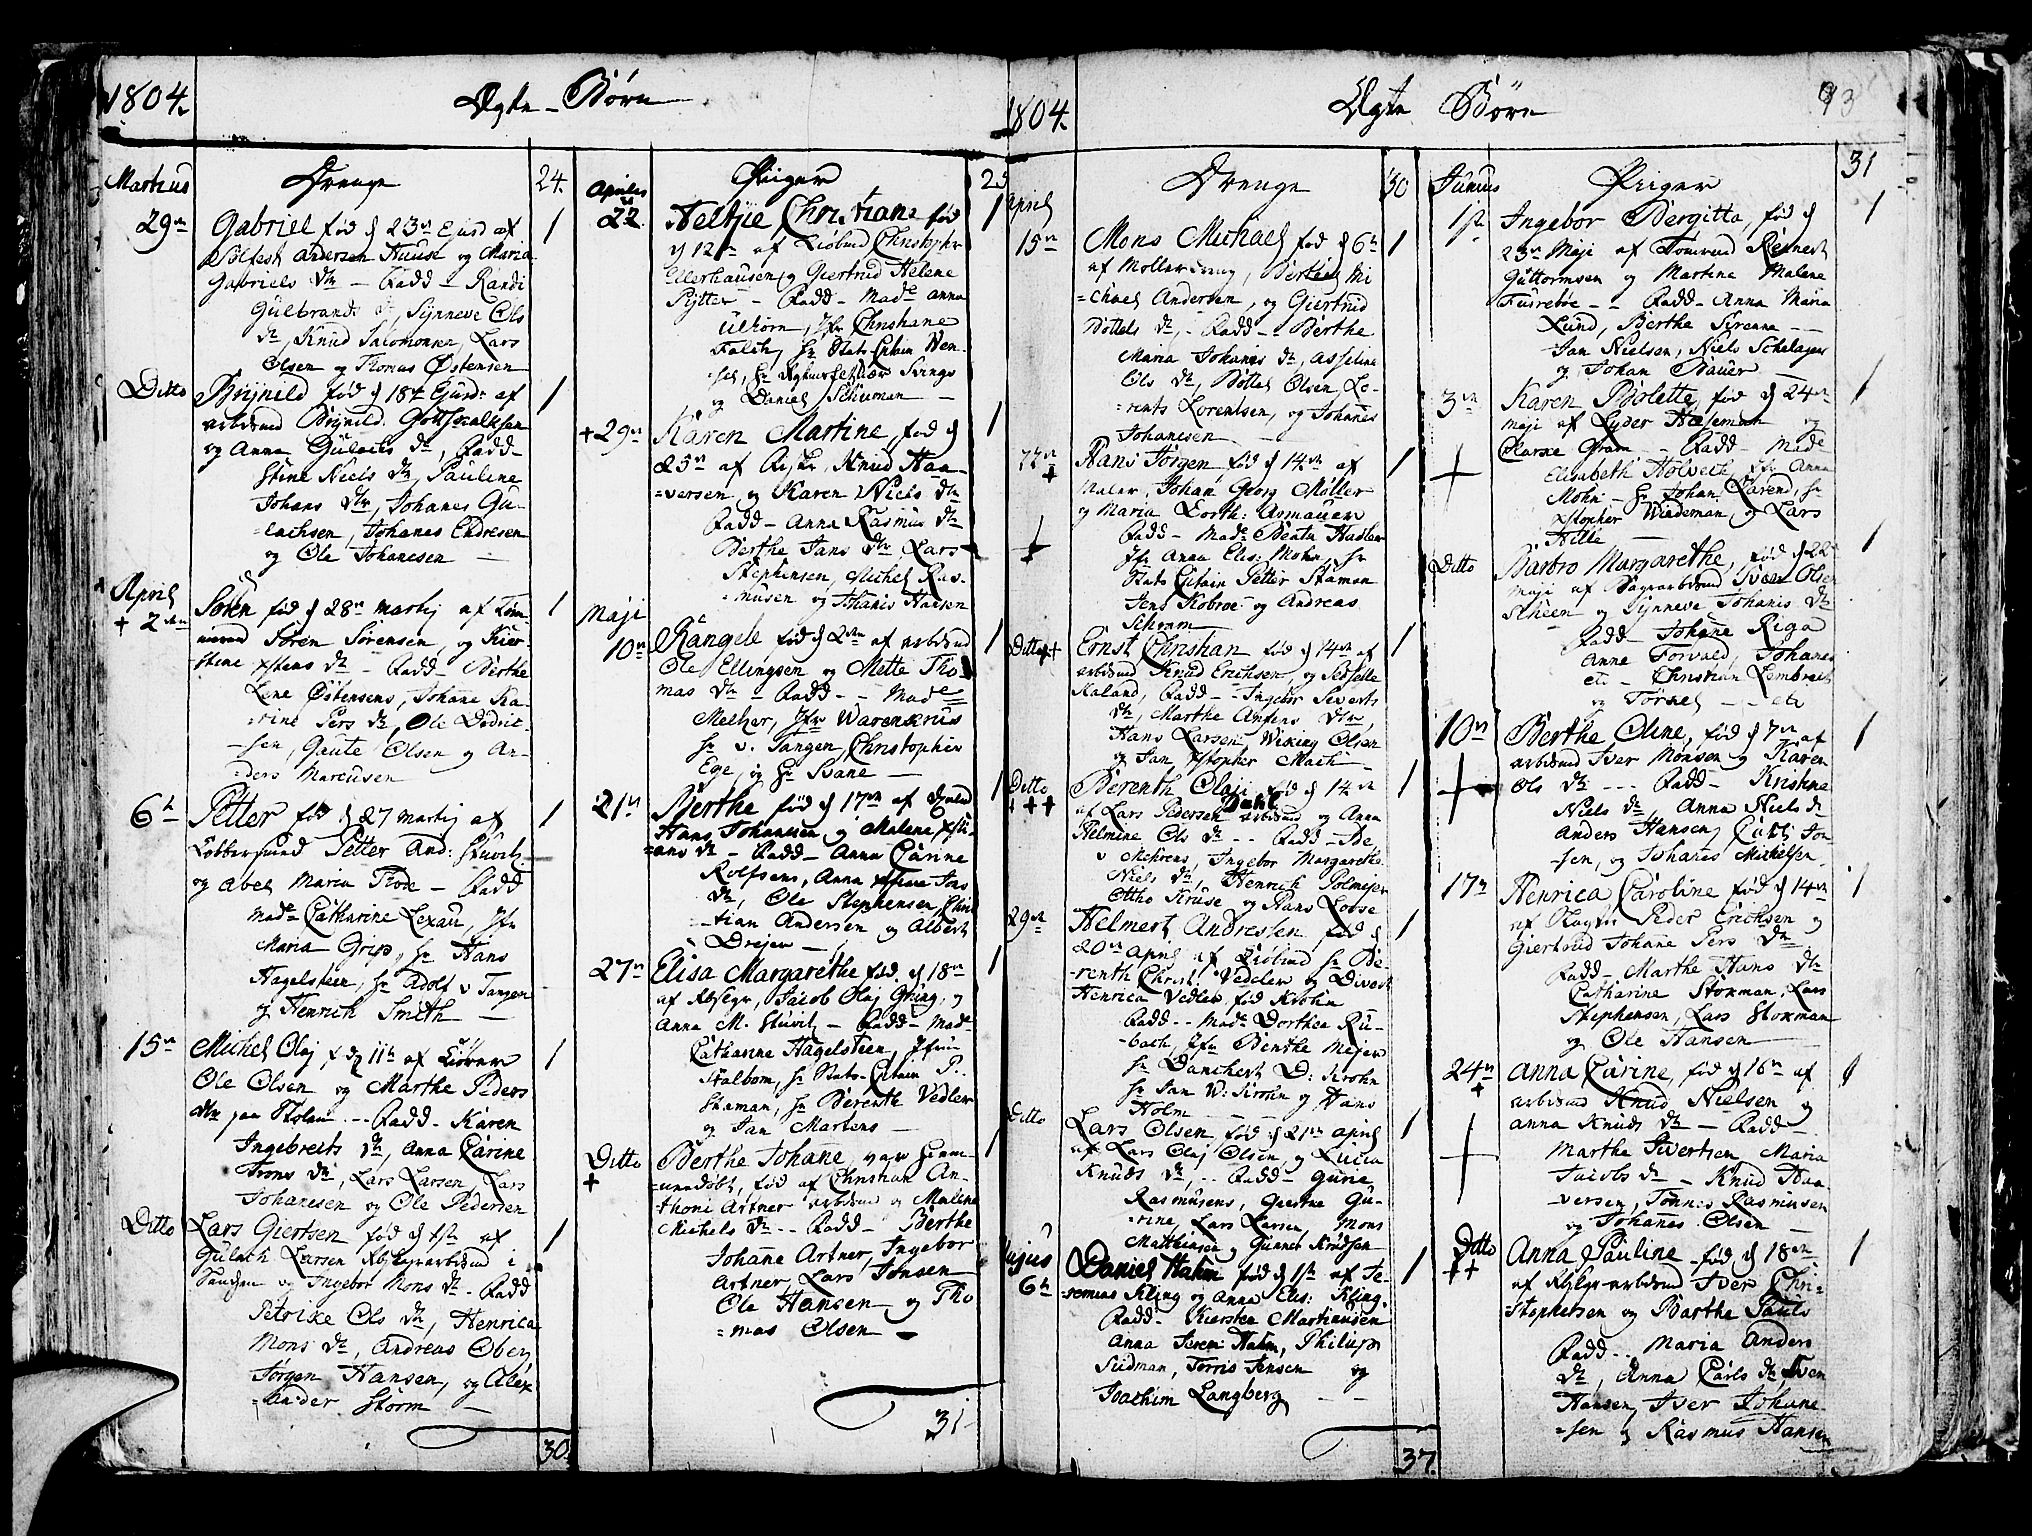 1804.
Ægte Børn
Martius
Drenge
24.
29n
Gabriel fød d 23n Ejusd af
Andersen Huuse og Maria
Gabriels dtr — Fadd — Randi
Gulbrands dr, Synneve Ols
dr, Knud Salomonsen, Lars
Olsen og Thomas Østensen
1
Ditto
Brynild fød d 18de Ejusd: af
arbdmd Brynild Gottskalksen
og Anna Gulacks dr, Fadd —
Stine Niels dtr, Pauline
Johans dtr, Johanes Gu-
=lachsen, Johanes Endresen
og Ole Johannesen —
1
April
+ 2den
Søren fød d 28n martij af Tøm
mermd Søren Sørensen, og Kier-
stine xstens dr — Fadd — Berthe
Lene Østensens, Johane Ka-
=rine Pers dr, Ole Didrik-
-sen, Gaute Olsen og An-
=ders Marcusen
1
6h
Petter fød d 27 Martij af
Petter And: Stuvitz
og Abel Maria Frode — Fadd
Made Catharine Lexau, Jfr
Maria Grip, hr Hans
Hagelsteen, hr Adolf v Tangen
og Henrich Smith —
1
15n
Michel Olaj, f d 11h af
Ole Olsen og Marthe Peders
dtr paa Stolen -- Fadd — Karen
Ingebreits dr, Anna Carine
Trons dr, Lars Larsen, Lars
Johanesen og Ole Pedersen
1
Ditto
Lars Giertsen fød d 1st af
Gulach Larsen arbdmd i
Sandviken og Ingebor Mons dr - Fadd
Petrike Ols dr, Henrica
Mons dr, Andreas Oben
Jørgen Hansen, og Alex-
=ander Storm —
1
30.
Aprilis
Piger
25
22
Aeltjie Christiane fød
d 12te af Kiøbmd Christopher
Ellerhausen, og Giertrud Helene
Pytter — Fadd — Made Anna
Ulhorn, Jfr Christiane
Falch, hr Stats Captain Wen-
-sel,
og Daniel Schuman —
1
+29n
Karen Martine, fød d
25n af Knud Haa-
=versen, og Karen Niels dtr
Fadd — Anna Rasmus dtr
Berthe Jans dtr, Lars
Stephensen, Michel Ras-
=musen og Johanis Hansen
1
Maji
10n
Rangele fød d 2den af arbdmd
Ole Ellingsen og Mette Tho
mas dtr — Fadd -- Made
Melher, Jfr Warenkrus
hr v. Tangen, Christopher
Ege, og hr Svane —
1
21n
Berthe fød d 17n af
Hans Johannsen og Malene xsti-
=ans dr — Fadd — Anna Carine
Rolfsens, Anna xstine Jens
dr, Ole Stephensen, Chris
-tian Andersen og Albert
Drejer —
1
27n
Elisa Margarethe fød d 18n
af Jacob Olaj Gring, og
Anna M. Stuvitz — Fadd — Made
Catharine Hagelsteen, Jfru
Stalbom, hr Stats-Captain P.
Shaman, hr Berenth Vedler
og Jan Martens —
1
Ditto
+
Berthe Johane, var hiem-
medøbt, fød af Christian An-
thoni Artner arbdmd og Malene
Michels dr -- Fadd — Berthe
Johanne Artner, Ingebor
Artner, Lars Jonsen
Ole Hansen og Tho
=mas Olsen —
1
31
1804.
Ægte Børn
93
April
Drenge
30
15n
Mons Michael fød d 6h
af Møllersvend, Mi
=chael Andersen, og Giertrud
Bottels dr, - Fadd -- Berthe
Maria Johanis dr, Asseline
Ols dr, Bottel Olsen, Lo-
=rents Lorentsen, og Johanes
Johanesen —
1
22n
+
Hans Jørgen fød d 14n af
Maler Johan Georg Møller
og Maria Dorth: Armauer
Fadd — Made Beata Hadler
Jfr Anna Elis: Mohn, hr
Stats Captain Petter Shaman
Jens Kobroe og Andreas
Schram —
1
Ditto ++
Ernst Christian fød d 14n af
arbdmd Knud Erichsen, og Sidselle
Kaland, Fadd -- Ingebor Siverts
dtr, Marthe Anfins dtr,
Hans Larsen, Wiking Olsen
og Jan xstopher Mach —
1
Ditto
+++
Berenth Olaji fød d 14n
af Lars Pedersen Dahl arbdmd og Anna
Helmine Ols dr -- Fadd — Be
v Mehrens, Ingebor Margarethe
Niels dr, Henrich Polmejer
Ottho Kruse og Hans Loose
1
29n
Helmert Andresen fød d
20n April af Kiøbmd hr Be-
-renth Christ: Vedeler og Divert
Henrica Vedler, fød Krohn
Fadd -- Made Dorthea Ru-
-bach, Jfr Benthe Mejer
hr Danchert D: Krohn
hr Jan W: Krohn og Hans
Holm —
1
Ditto
Lars Olsen, fød d 21n April
af Lars Olaj Olsen og Lucia
Knuds dr, -- Fadd — Gurie
Rasmusens, Geertie Gu-
-rine, Lars Larsen, Mons
Matthiasen og Gunner Knudsen
1
Majus
6h
Daniel Hahn fød d 1ste af Je-
=remias Kling og Anna Elis: Kling.
Fadd — Kiersten Martinusen
Anna Severi Hahn, Philip
Sudman, Torris Jensen og
Joachim Langberg —
1
37.
Junius
Piger
31
1st
Ingebor Bergitta, fød d
23n Maji af Tømmd Reinert
Guttormsen og Martine Malene
Furreboe — Fadd — Anna Maria
Lund, Berthe Sirenne —
Jan Nielsen, Niels Schelager
og Johan Bauer —
1
3n
Karen Bolette, fød d 24n
Maji af Lyder Hasseman og
Clarske Gram — Fadd — Made
Elisabeth Holveth, Jfr Anna
Mohn — hr Johan Carend, hr
xstopher Wiedeman, og Lars
Hille —
1
Ditto
Barbro Margarethe, fød d 22
Maji af Sagarbdmd Sven Olsen
Scheen og Synneve Johanis dr
Fadd — Johane Riga
Anne Forvald, Johanes
etc — Christian Lembrech
og Tørnel — etc
1
10n
Berthe Oline, fød d 7n af
arbdmd Iver Monsen og Karen
Ols dr --- Fadd — Kristine
Niels dr, Anna Niels dr
Anders Hansen, Jon-
-sen, og Johanes Michelsen.
1
17n
Henrica Caroline fød d 14n
af Peder Erichsen og
Giertrud Johane Pers dr
Fadd — Marthe Hans dr
Catharine Stokman, Lars
Stephensen, Lars Stokman
og Ole Hansen —
1
24n
+
Anna Carine, fød d 16n af
arbdmd Knud Nielsen og
Anna Knuds dr — Fadd —
Marthe Sivertsen, Maria
Jacobs dr — Knud Haa-
versen, Tønnes Rasmusen
og Johanes Olsen —
1
Ditto
++
Anna Pauline fød d 18n
af arbdmd Iver Chri-
Stephersen og Barthe Pauls
Fadd -- Maria Anders
dr, Anna Carls dr Sven
Hansen, Iver Johane
=sen og Rasmus Hansen
1